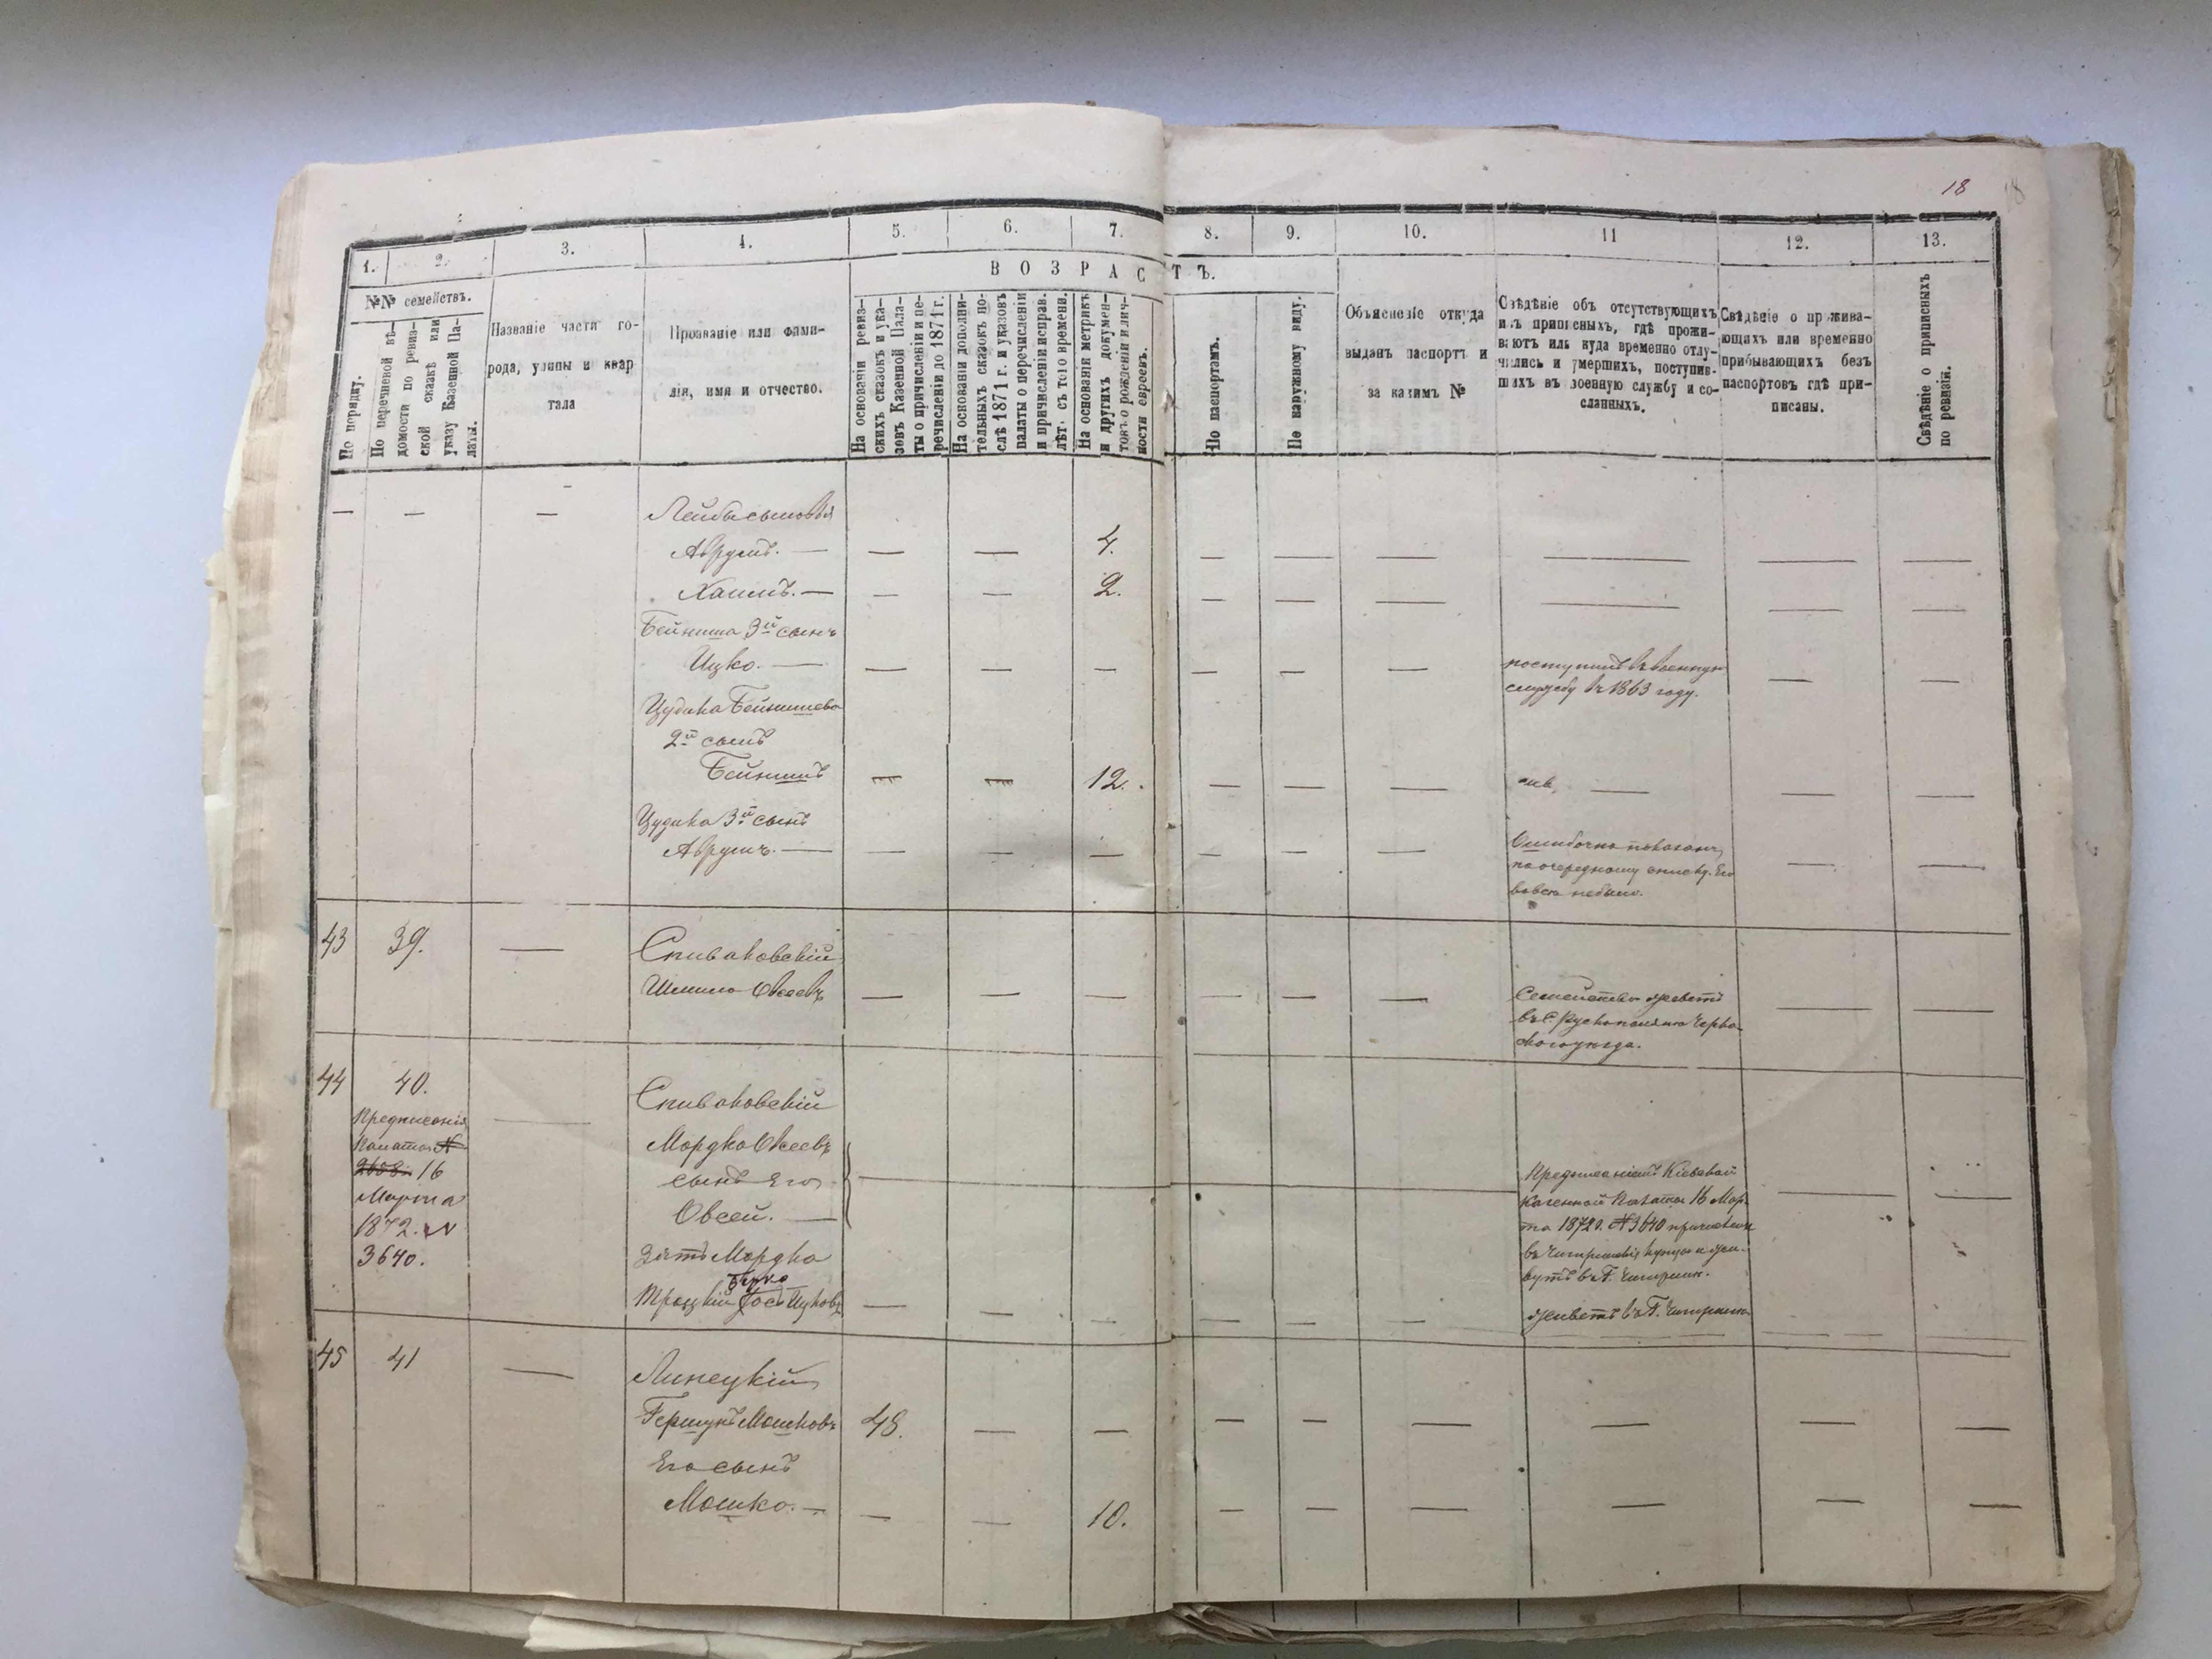 18
1.
2.
3.
4.
5.
6.
7.
8.
9.
10.
11
12.
13.
ВОЗРАСТЪ.
№№ семействъ.
По порядку.
По перечневой вѣ-
домости по ревиз-
ской сказкѣ или
указу Казенной Па-
латы.
Названіе части го-
рода, улицы и квар
тала
Прозваніе или фами-
лія, имя и отчество.
На основаніи ревиз-
скихъ сказокъ и ука-
зовъ Казенной Пала-
ты о причисленіи и пе-
речисленіи до 1871 г.
На основаніи дополни-
тельныхъ сказокъ по-
слѣ 1871 г. и указовъ
палаты о перечисленіи
и причисленіи исправ.
лѣт. съ того времени.
На основаніи метрикъ
и другихъ докумен-
товъ о рожденіи и лич-
ности евреевъ.
По паспортамъ.
По наружному виду.
Объясненіе откуда
выданъ паспортъ и
за какимъ №
Свѣдѣніе объ отсутствующихъ
изъ приписныхъ, гдѣ прожи-
ваютъ или куда временно отлу-
чились и умершихъ, поступив-
шихъ въ военную службу и со-
сланныхъ.
Свѣдѣніе о прожива-
ющихъ или временно
прибывающихъ безъ
паспортовъ гдѣ при-
писаны.
Свѣдѣніе о приписныхъ
по ревизіи.
— — — Лейбы сыновья
Аврумъ. — — — 4. — — — — — —
Хаимъ. — — — 2. — — — — — —
Бейниша 3й сынъ
Ицко. — — — — — — — поступилъ въ военную — —
службу въ 1863 году.
Цудика Бейнишева
2й сынъ
Бейнишъ — — 12. — — — — — —
Цудика 3й сынъ
Аврумъ. — — — — — — — Ошибочно показанъ — —
по очередному списку. Его
вовсе небыло.
43 39. — Спиваковскій
Шмило Овсеевъ — — — — — — Семейство живетъ — —
въ С. Рускополяно Черка
скогоуѣзда.
44 40. Спиваковскій
Предписанія —
Палаты №
16
Марта
1872. №
3640.
Мордко Овсеевъ
сынъ Его
Овсей. —
Предписаніемъ Кіевской
Казенной Палаты 16 Мар-
та 1872 г. №3640 причислены
въ Чигиринскія купцы и жи-
вутъ въ Г. Чигирин.
Зять Мордка
Берко
Троцкій Іось Ицковъ — — — — — — живетъ въ Г. Чигирин
45 41 — Липецкій
Гершунъ Мошковъ 48. — — — — — — — —
Его сынъ
Мошко. — — — 10. — — — — — —